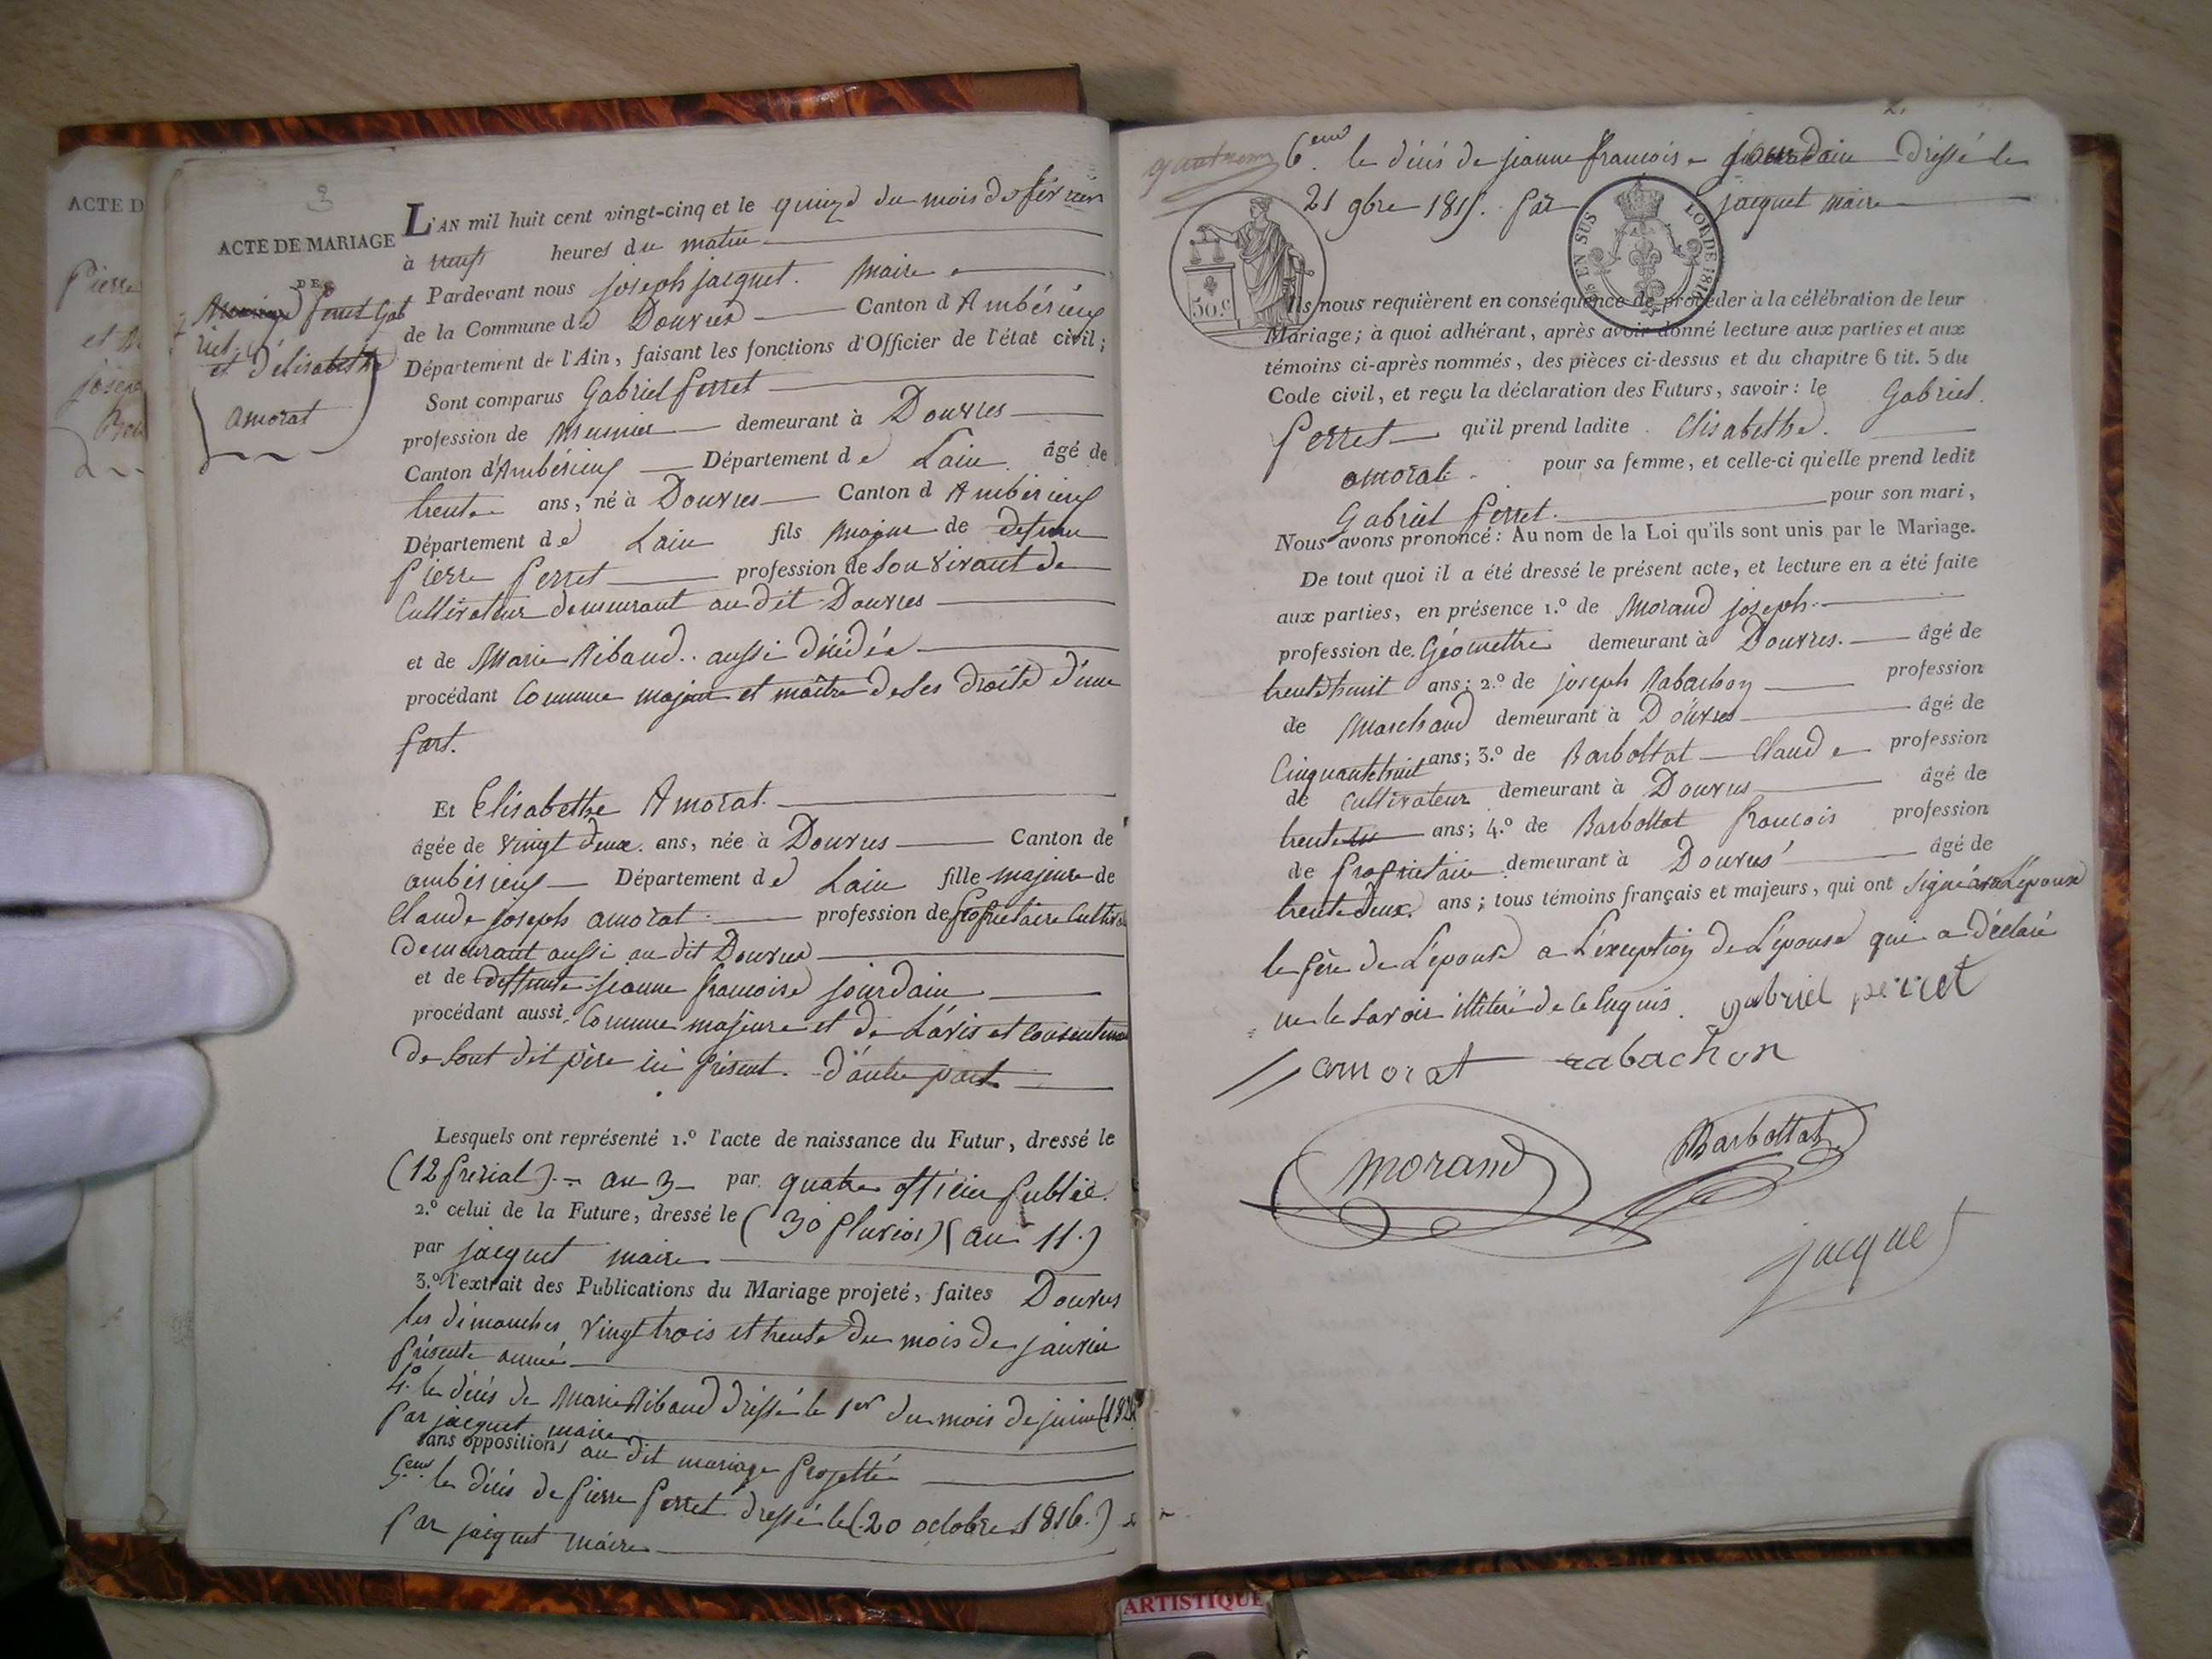 ACTE D
Pierre
et
joseph
3
ACTE DE MARIAGE
DE
Perret Gab
riel
et d'élisabethe
amorat
L'AN mil huit cent vingt-cinq et le quinze du mois de fevrier
à neuf heures du matin
Pardevant nous joseph jacquet. Maire
de la Commune de Douvres Canton d'Ambérieux
Département de l'Ain, faisant les fonctions d'Officier de l'état civil;
Sont comparus Gabriel Perret
profession de Meunier demeurant à Douvres
Canton d'Ambérieux Département de Lain âgé de
trente ans, né à Douvres Canton d Ambérieux
Département de Lain fils majeur de defunt
Pierre Perret profession de son vivant de
Cultivateur demeurant au dit Douvres
et de Marie Ribaud.. aussi décédée
procédant Comme majeur et maître de ses droits d'une
part.
Et Elisabethe Amorat.
âgée de vingt deux. ans, née à Douvres Canton de
ambérieux Département de Lain fille majeure de
Claude joseph amorat profession de Propriétaire Cultiva
demeurant aussi au dit Douvres
et de deffunte jeanne francoise jourdain
procédant aussi Comme majeure et de L'avis et consentement
de sont dit père ici présent. d'autre part
Lesquels ont représenté 1.º l'acte de naissance du Futur, dressé le
(12 prerial) an 3 par quatre officier public.
2.º celui de la Future, dressé le (30 pluvios) (an 11.)
par jacquet maire
3.º l'extrait des Publications du Mariage projeté, faites Douvres
les dimanches vingt trois et trente du mois de janvier
présente année
4.º le décés de Marie Ribaud dressé le 1er du mois de juin
par jacquet maire
sans oppositions au dit mariage projetté
5.eme le décés de Pierre Perret dressé le (20 octobre 1816.)
par jacquet maire
2.
6eme le décés de jeanne francoise jourdain dressé le
21 9bre 1815. par jacquet maire
50.c
EN SUS
LOI DE 1816
Ils nous requièrent en conséquence de procéder à la célébration de leur
Mariage; à quoi adhérant, après avoir donné lecture aux parties et aux
témoins ci-après nommés, des pièces ci-dessus et du chapitre 6 tit. 5 du
Code civil, et reçu la déclaration des Futurs, savoir: le Gabriel.
Perret qu'il prend ladite Elisabethe.
amorat. pour sa femme, et celle-ci qu'elle prend ledit
Gabriel Perret. pour son mari,
Nous avons prononcé: Au nom de la Loi qu'ils sont unis par le Mariage.
De tout quoi il a été dressé le présent acte, et lecture en a été faite
aux parties, en présence 1.º de Morand joseph.
profession de Géomettre demeurant à Douvres. âgé de
trente huit ans; 2.º de joseph Rabachon profession
de Marchand demeurant à Douvres âgé de
Cinquante huit ans; 3.º de Barbottat Claude profession
de Cultivateur demeurant à Douvres âgé de
trente ans; 4.º de Barbottat francois profession
de Propriétaire demeurant à Douvres âgé de
trente deux. ans; tous témoins français et majeurs, qui ont signé avec L'époux
le père de L'épouse a L'exception de L'épouse qui a déclaré
ne le savoir de ce Enquis. gabriel perret
amorat rabachon
Morand Barbottat
jacquet
ARTISTIQUE